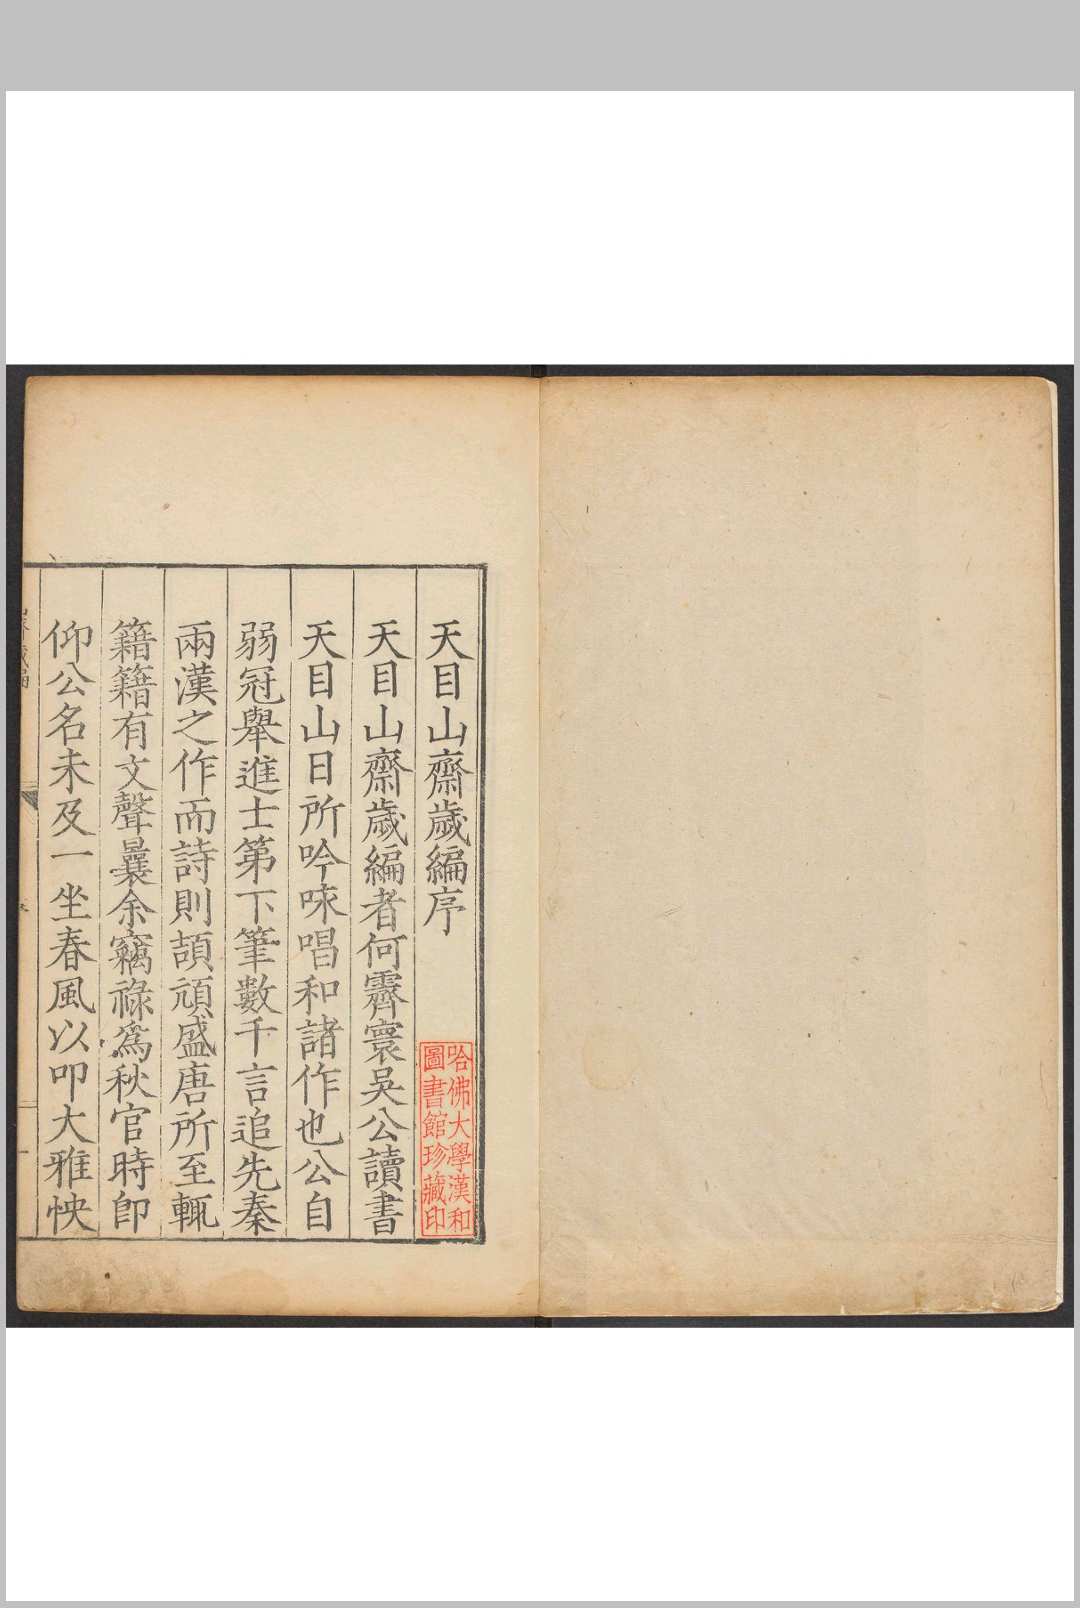 天目山齋歲編序
天目山齋歲編者何霽寰吳公讀書
天目山日所吟咏唱和諸作也公自
弱冠舉進士第下筆數千言追先秦
兩漢之作而詩則頡頏盛唐所至輒
籍籍有文聲曩余竊祿爲秋官時卽
仰公名未及一坐春風以叩大雅怏
哈佛大學漢和
圖書館珍藏印